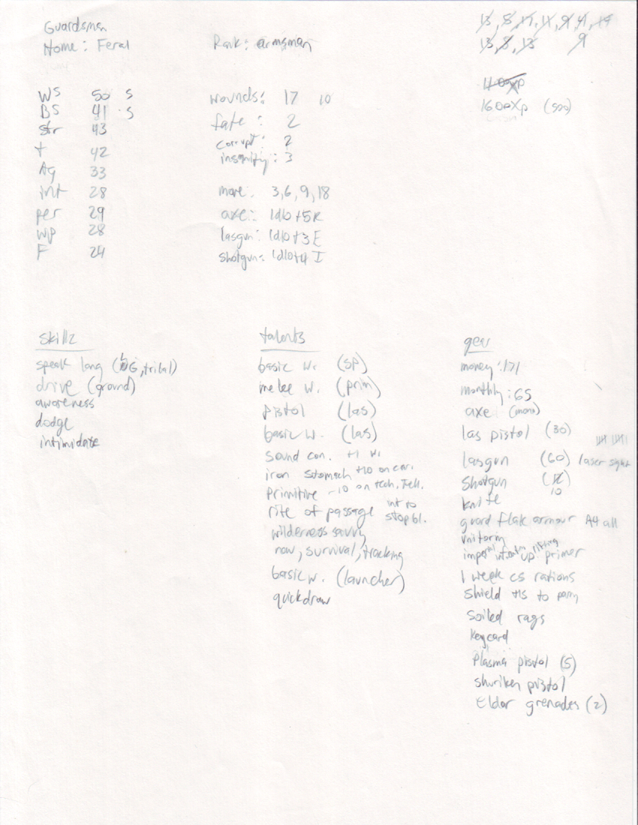 Guardsman
Home: Feral
Rank: armsman
13, 8, 17, 11, 9, 11, 14
13, 8, 13 9
1600xp (500)
WS 50 5
BS 41 5
Str 43
t 42
Ag 33
int 28
per 29
wp 28
F 24
wounds: 17 10
fate: 2
corrupt: 2
insanity: 3
move: 3, 6, 9, 18
axe: 1d10+5R
lasgun: 1d10+3 E
shotgun: 1d10+4 I
skillz
speak lang (LG, tribal)
drive (ground)
awareness
dodge
intimidate
talents
basic w. (SP)
melee w. (prim)
pistol (las)
basic w. (las)
sound con. +1 w.
iron stomach +10 on car.
primitive -10 on tech,
rite of passage int to stop bl.
wilderness savvy
nav, survival, tracking
basic w. (launcher)
quickdraw
gear
money: 171
monthly: 65
axe (mono)
las pistol (30)
lasgun (60) laser sight
shotgun (12) 10
knife
guard flak armour A4 all
uniform
imperial infantry up lifting primer
1 week cs rations
shield +15 to parry
soiled rags
keycard
Plasma pistol (5)
shuriken pistol
Eldar grenades (2)